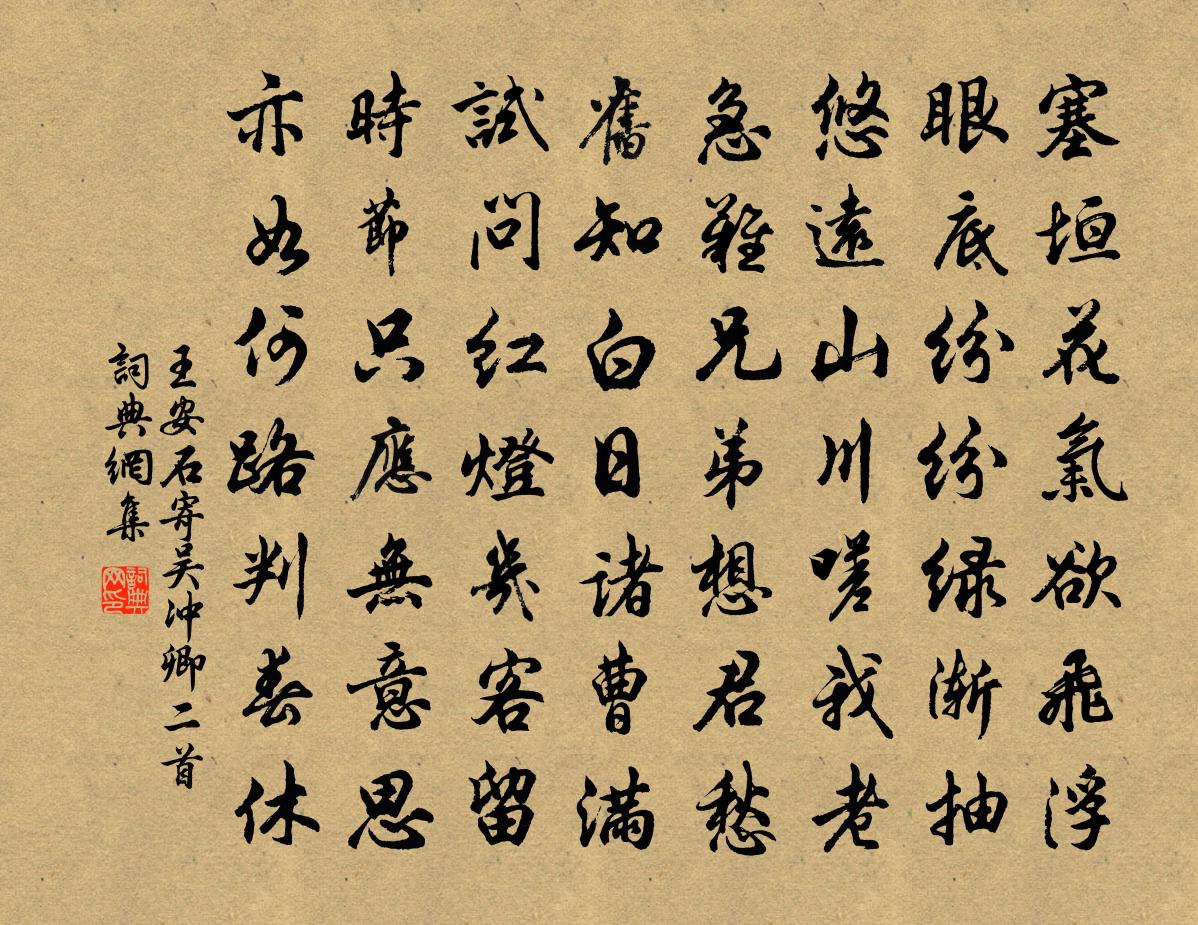 塞垣花氣欲飛浮
眼底紛紛绿漸抽
悠遠山川嗟我老
急難兄弟想君愁
舊知白日諸曹滿
試問紅燈幾客留
時節只應無意思
亦如何路判春休
王安石寄吴沖卿二首
詞典網集
詞典
网印